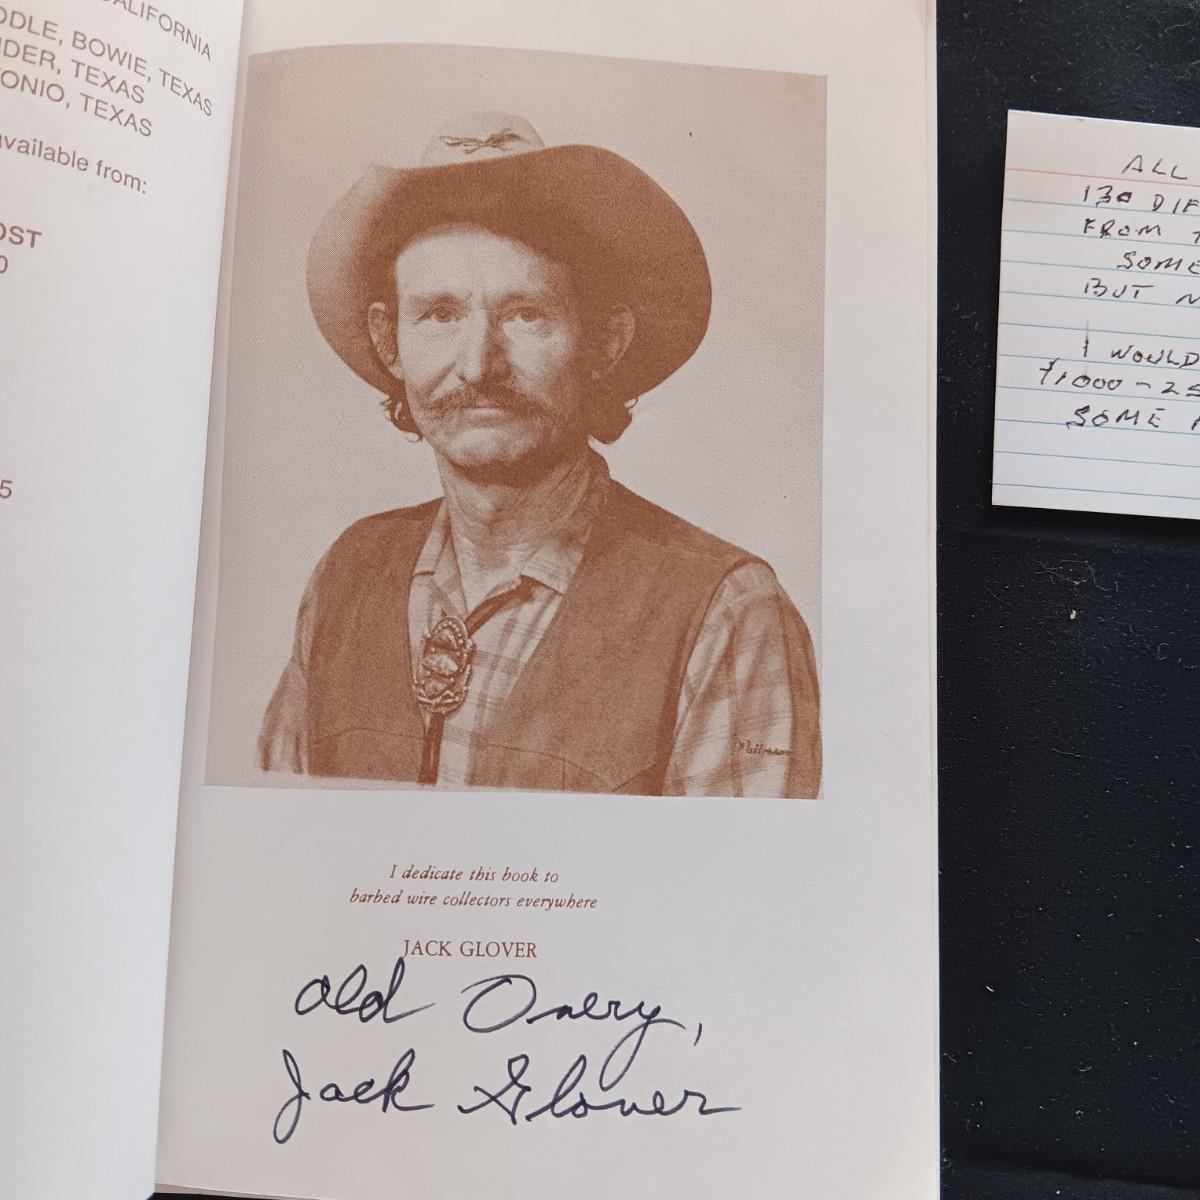 CALIFORNIA
BOWIE, TEXAS
TEXAS
TEXAS
available from:
0
5
I dedicate this book to
barbed wire collectors everywhere
JACK GLOVER
Old Onery,
Jack Glover
ALL
130
FROM
SOME
BUT
I WOULD
SOME